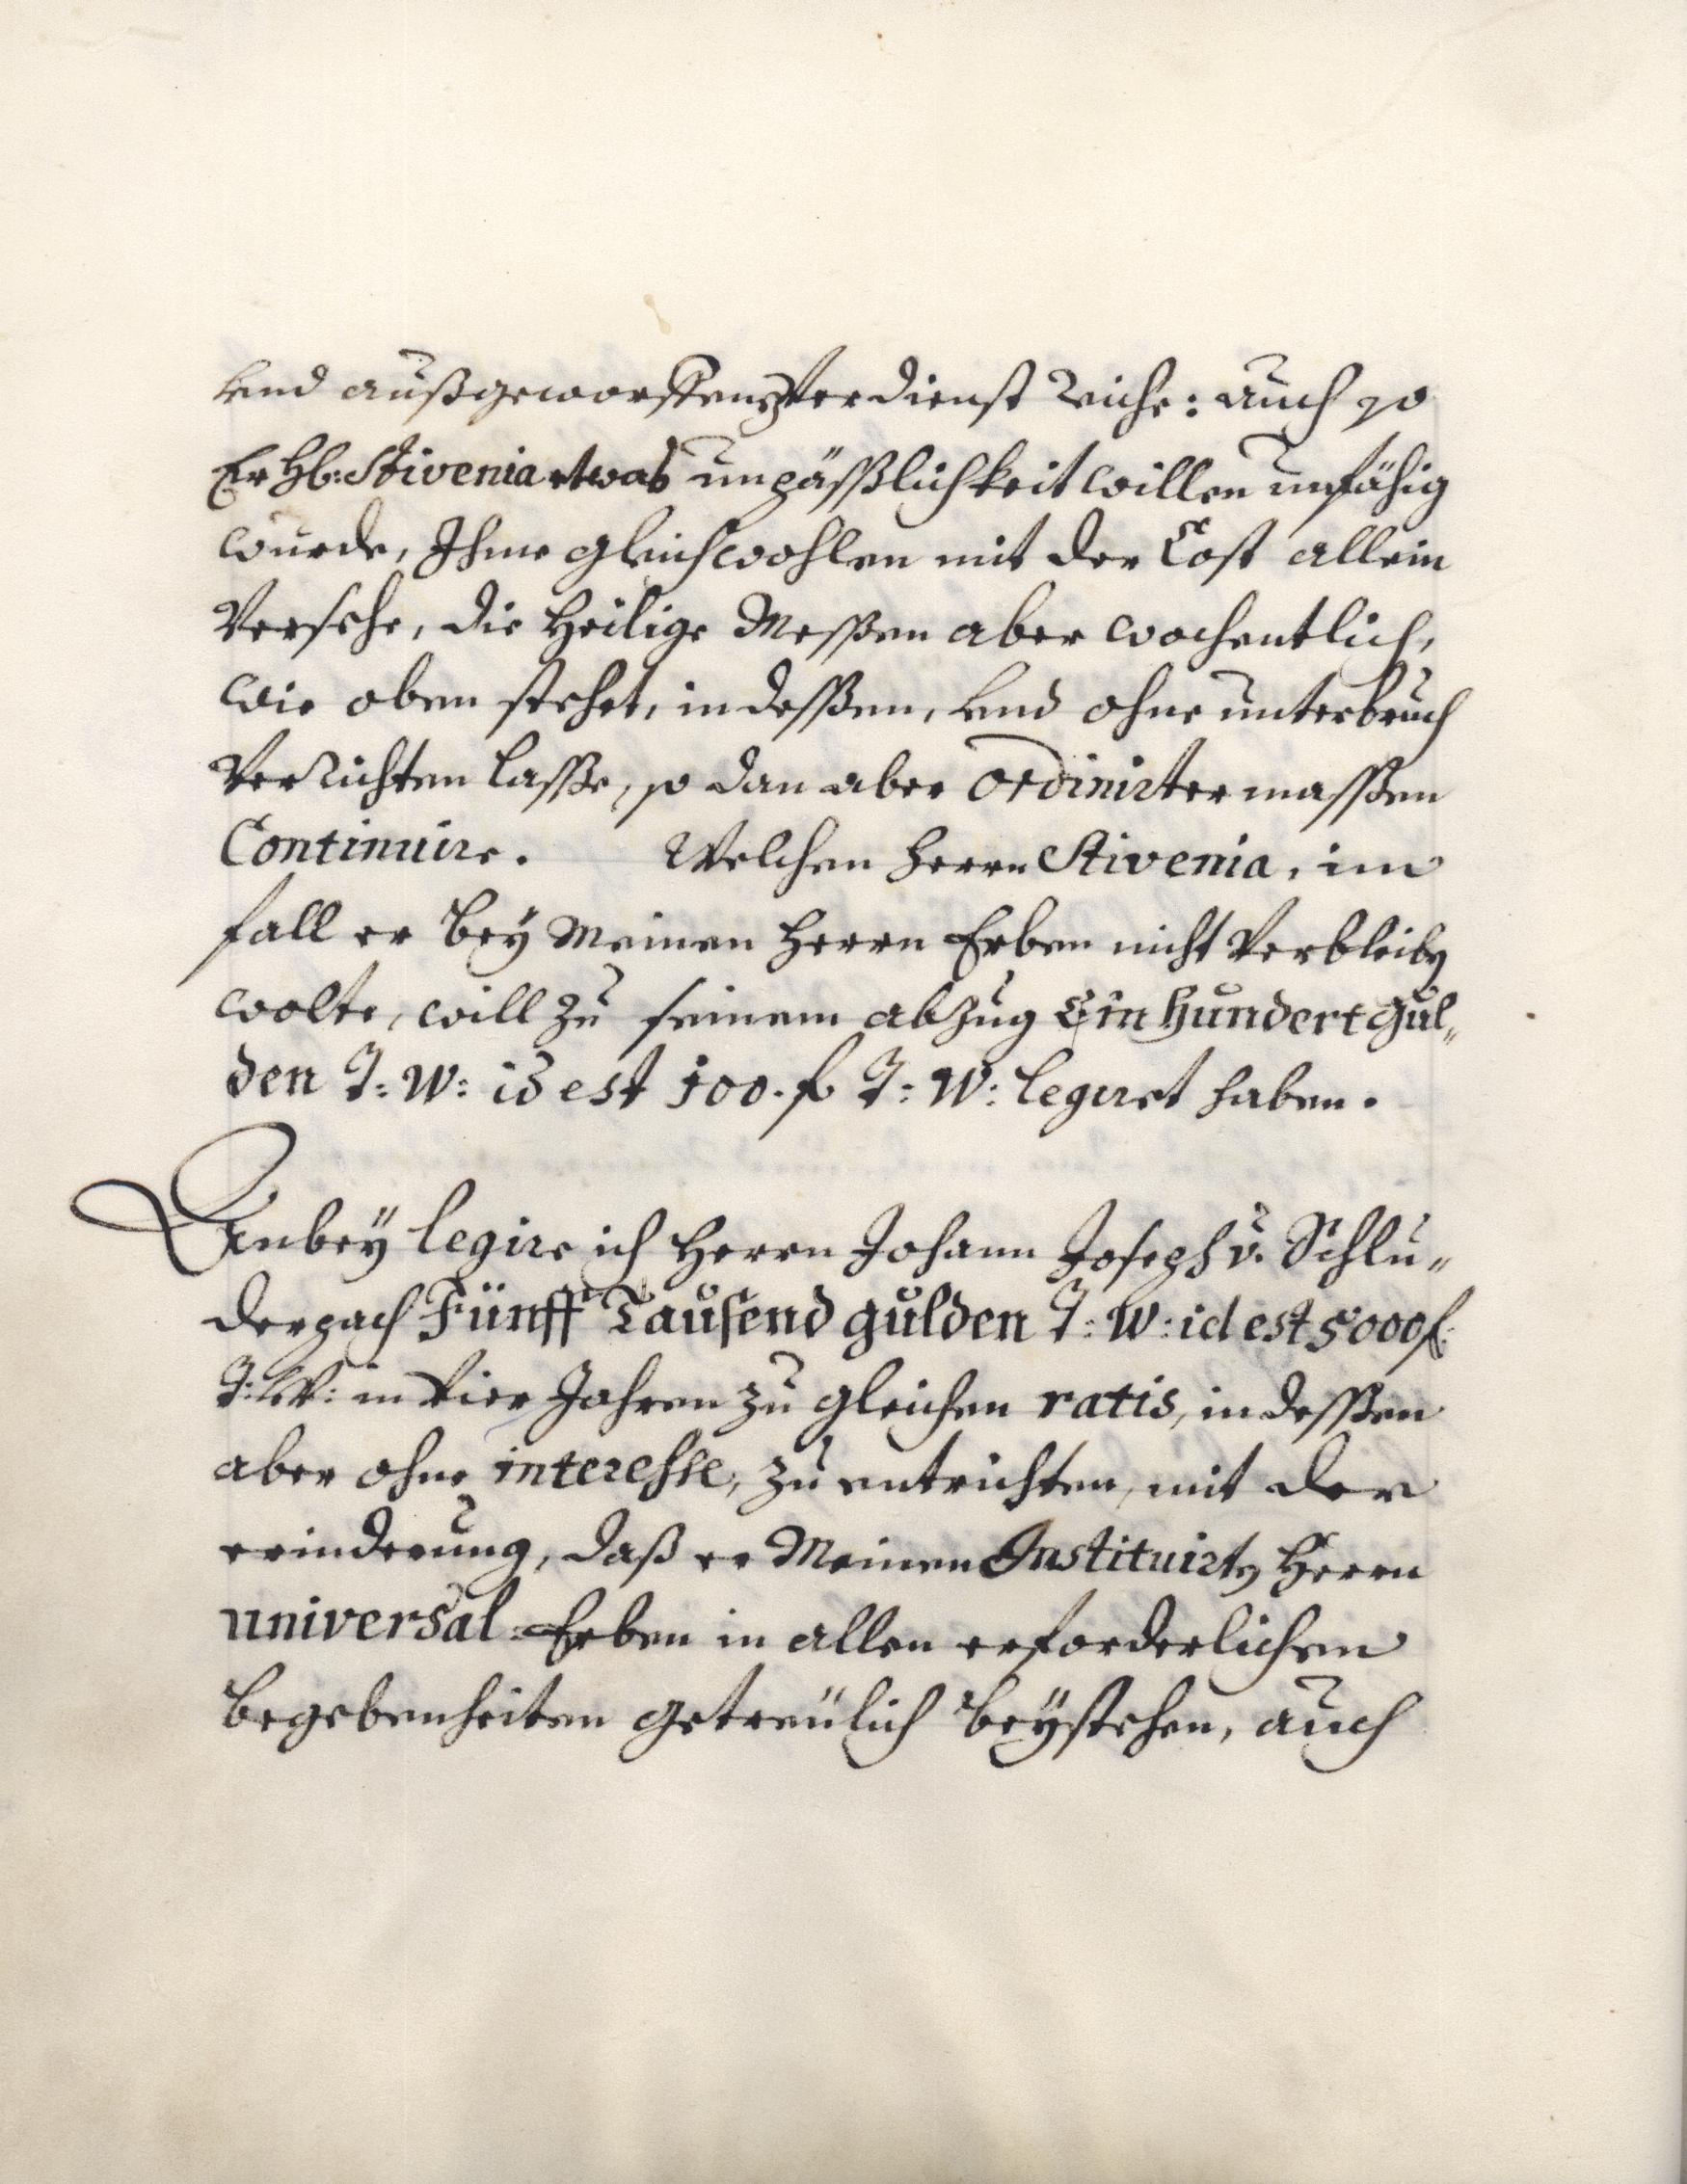 und außgeworffenen Verdienst reiche: auch so
Er H: Stivenia etwas unpäßlichkeit willen unfähig
wurde, Ihme gleichwohlen mit der Cost allein
Versehe, die Heilige Messen aber wochentlich,
wie oben stehet, in dessen, und ohne unterbruch
Verrichten lasse, so dan aber ordinirter massen
Continuire. Welchen Herrn Stivenia, im
fall er bey Meinen Herrn Erben nicht Verbleiben
wolte, will zu seinem abzug Ein hundert gul„
den T: W: id est 100. f T: W: legiret haben.
Anbey legire ich Herrn Johann Joseph v. Schlu„
derpach Fünff Tausend gulden T: W: id est 5000 f:
T: W: in Vier Jahren zu gleichen ratis, in dessen
aber ohne interesse, zu entrichten, mit der
erinderung, daß er Meinen Instituirten Herrn
universal-Erben in allen erforderlichen
begebenheiten getreulich beystehen, auch